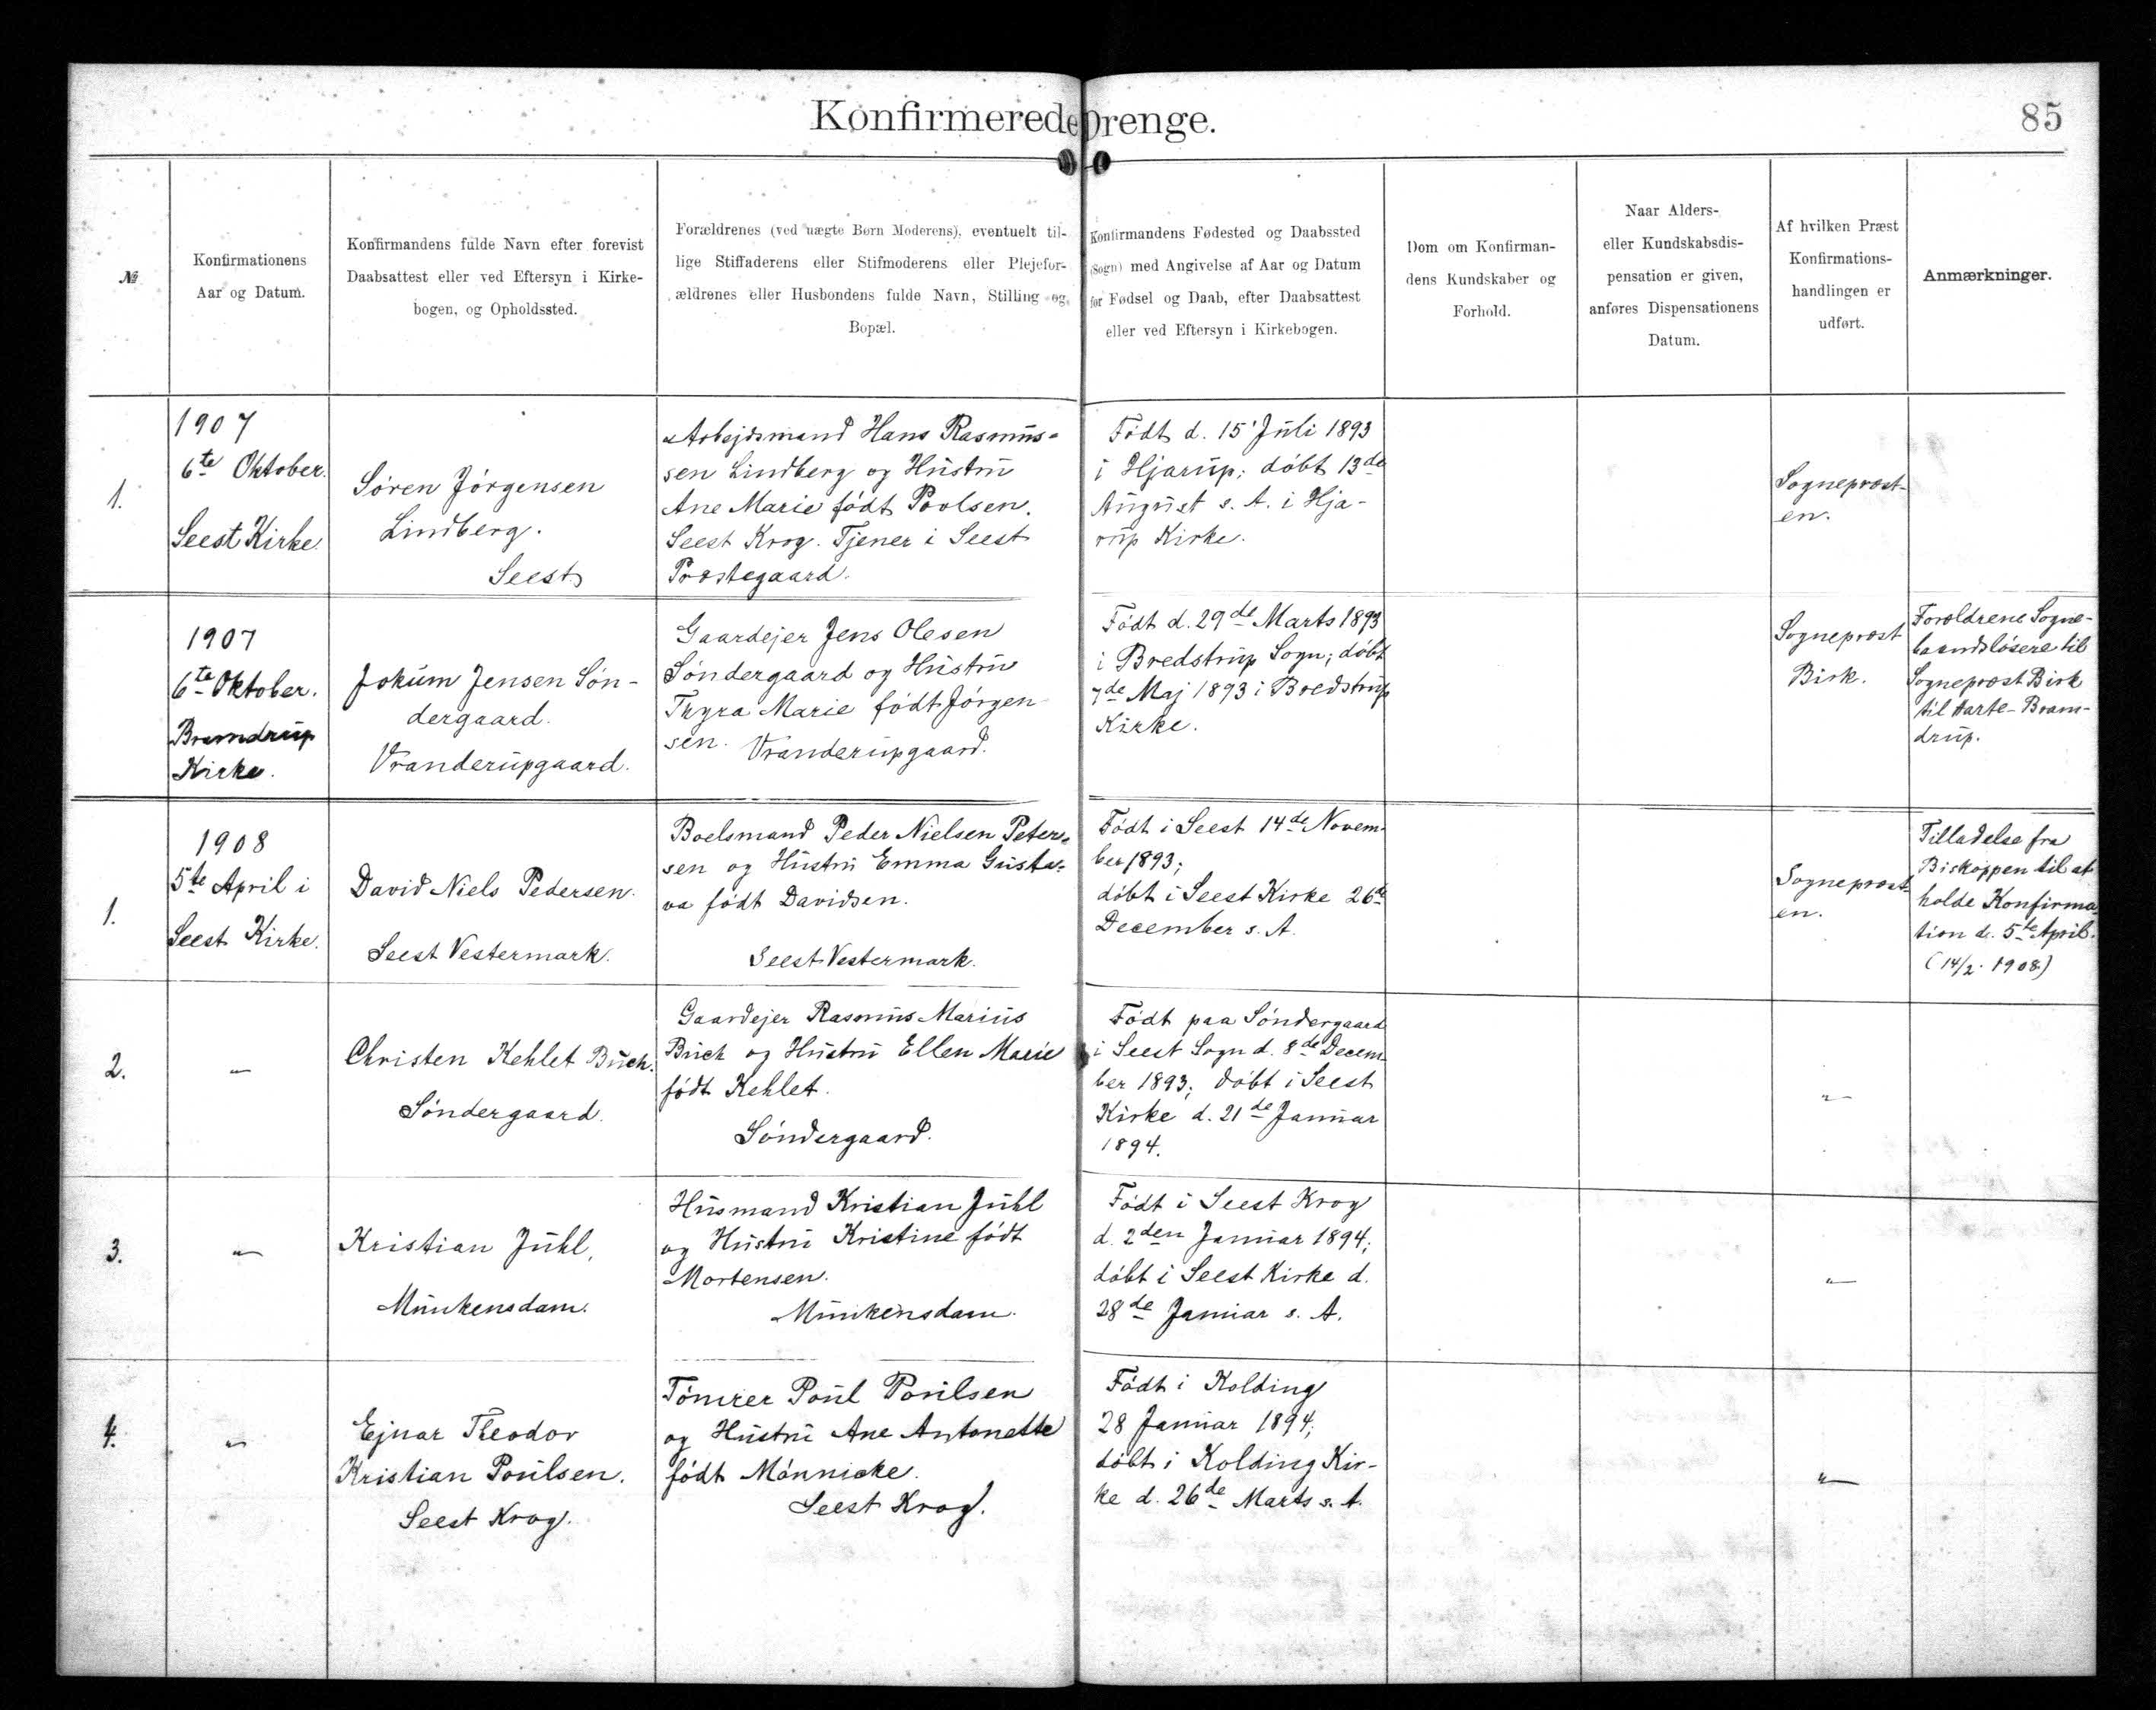 Konfirmerede Drenge.
85
№
Konfirmationens
Aar og Datum.
Konfirmandens fulde Navn efter forevist
Daabsattest eller ved Eftersyn i Kirke-
bogen, og Opholdssted.
Forældrenes (ved uægte Børn Moderens), eventuelt til-
lige Stiffaderens eller Stifmoderens eller Plejefor-
ældrenes eller Husbondens fulde Navn, Stilling og
Bopæl.
Konfirmandens Fødested og Daabssted
(Sogn) med Angivelse af Aar og Datum
for Fødsel og Daab, efter Daabsattest
eller ved Eftersyn i Kirkebogen.
Dom om Konfirman-
dens Kundskaber og
Forhold.
Naar Alders-
eller Kundskabsdis-
pensation er given,
anføres Dispensationens
Datum.
Af hvilken Præst
Konfirmations-
handlingen er
udført.
Anmærkninger.
1.
1907
6te Oktober.
Seest Kirke.
Søren Jørgensen
Lindberg.
Seest
Arbejdsmand Hans Rasmus-
sen Lindberg og Hustru
Ane Marie født Poulsen.
Seest Krog. Tjener i Seest
Præstegaard.
Født d. 15' Juli 1893
i Hjarup; døbt 13de
August s. A. i Hja-
rup Kirke.
Sognepræst-
en.
1907
6te Oktober.
Bramdrup
Kirke.
Jokum Jensen Søn-
dergaard.
Vranderupgaard.
Gaardejer Jens Olesen
Søndergaard og Hustru
Thyra Marie født Jørgen-
sen. Vranderupgaard.
Født d. 29de Marts 1893
i Bredstrup Sogn; døbt
7de Maj 1893 i Bredstrup
Kirke.
Sognepræst
Birk.
Forældrene Sogne-
baandsløsere til
Sognepræst Birk
til Harte-Bram-
drup.
1.
1908
5te April i
Seest Kirke.
David Niels Pedersen.
Seest Vestermark.
Boelsmand Peder Nielsen Peter-
sen og Hustru Emma Gusta-
va født Davidsen.
Seest Vestermark.
Født i Seest 14de Novem-
ber 1893;
døbt i Seest Kirke 26de
December s. A.
Sognepræst-
en.
Tilladelse fra
Biskoppen til at
holde Konfirma-
tion d. 5te April.
(14/2. 1908)
2.
"
Christen Kehlet Buch.
Søndergaard.
Gaardejer Rasmus Marius
Buch og Hustru Ellen Marie
født Kehlet.
Søndergaard.
Født paa Søndergaard
i Seest Sogn d. 8de Decem-
ber 1893; døbt i Seest
Kirke d. 21de Januar
1894.
"
3.
"
Kristian Juhl,
Munkensdam.
Husmand Kristian Juhl
og Hustru Kristine født
Mortensen.
Munkensdam.
Født i Seest Krog
d. 2den Januar 1894;
døbt i Seest Kirke d.
28de Januar s. A.
"
4.
"
Ejnar Theodor
Kristian Poulsen.
Seest Krog.
Tømrer Poul Poulsen
og Hustru Ane Antonette
født Mønnicke.
Seest Krog.
Født i Kolding
28 Januar 1894;
døbt i Kolding Kir-
ke d. 26de Marts s. A.
"